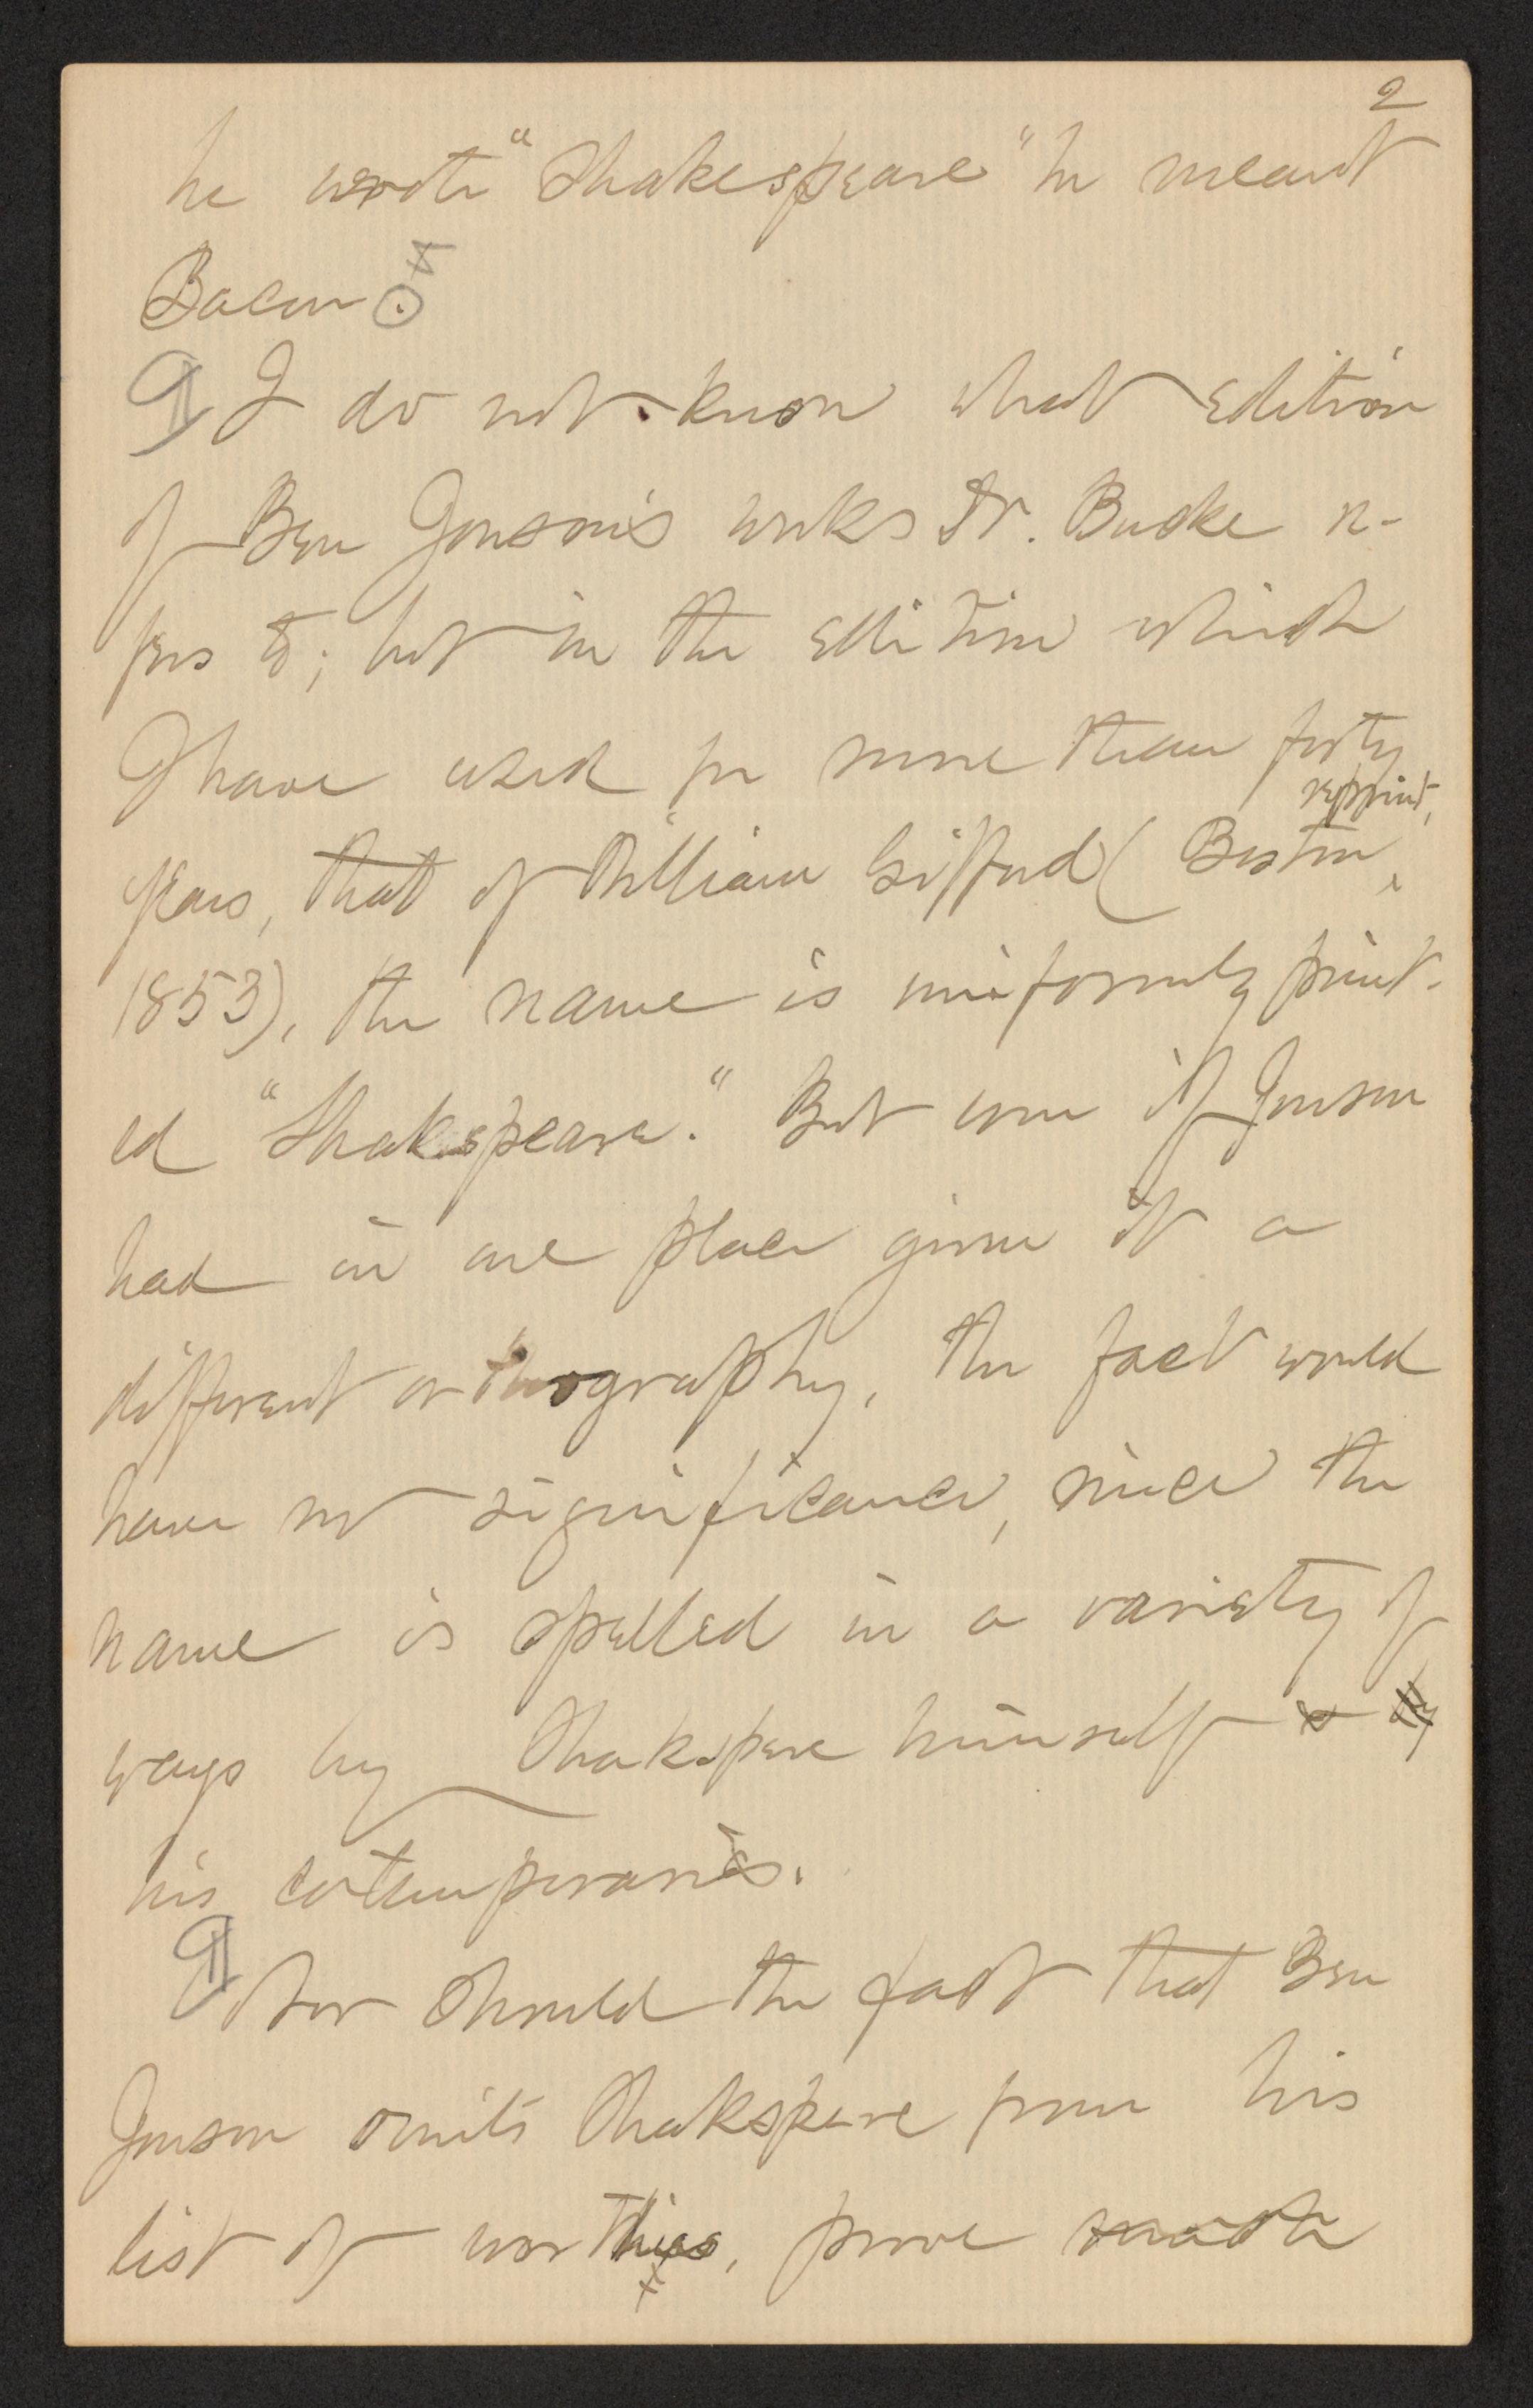 2
he wrote "Shakespeare" he meant
Bacon.
¶ I do not know what edition
of Ben Jonson's works Dr. Bucke re-
fers to; but in the edition which
I have used for more than forty
reprint,
years, that of William Gifford (Boston,
1853), the name is uniformly print-
ed "Shakspeare." But even if Jonson
had in one place given it a
different orthography, the fact would
have no significance, since the
name is spelled in a variety of
ways by Shakspere himself & by
his cotemporaries.
¶ Nor should the fact that Ben
Jonson omits Shakspere from his
list of worthies, prove